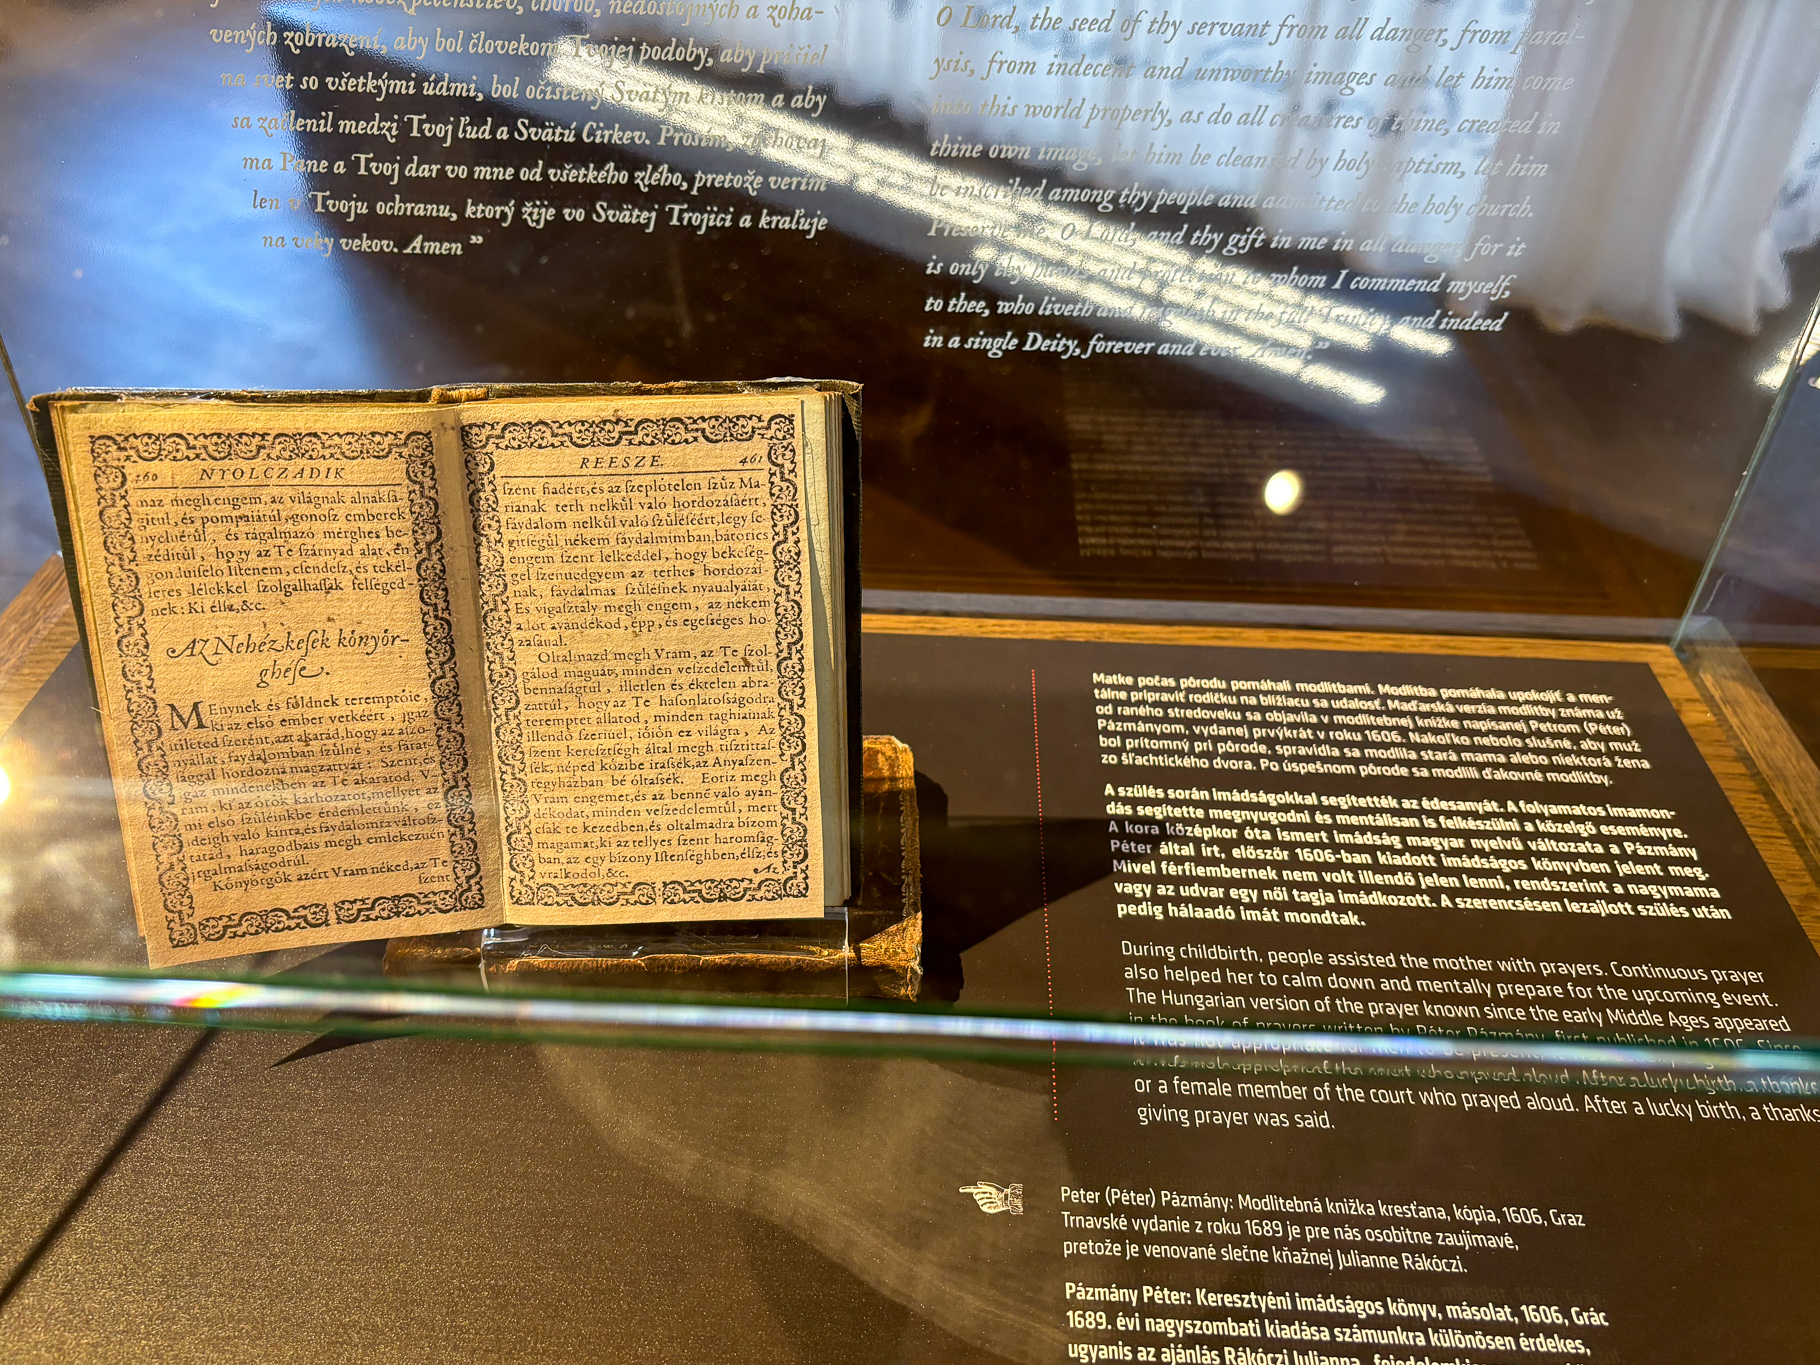 nedostojných a zoha-
vených zobrazení, aby bol človekom Tvojej podoby, aby prišiel
na svet so všetkými údmi, bol očistený Svätým krstom a aby
sa začlenil medzi Tvoj ľud a Svätú Cirkev. Prosím, zachovaj
ma Pane a Tvoj dar vo mne od všetkého zlého, pretože verím
len v Tvoju ochranu, ktorý žije vo Svätej Trojici a kraľuje
na veky vekov. Amen”
O Lord, the seed of thy servant from all danger, from paral-
ysis, from indecent and unworthy images and let him come
into this world properly, as do all creatures of thine, created in
thine own image, let him be cleansed by holy baptism, let him
be inscribed among thy people and admitted to the holy church.
Preserve me, O Lord, and thy gift in me in all danger, for it
is only thy hands and protection to whom I commend myself,
to thee, who liveth and reigneth in the full Trinity and indeed
in a single Deity, forever and ever. Amen.”
460 NYOLCZADIK
naz megh engem, az világnak alnaksá-
gitul, és pompaiátul, gonosz emberek
nyelvérűl, és rágalmazó mérghes be-
zéditűl, hogy az Te szárnyad alat, én
gonduiselo Istenem, csendesz, és tekél-
letes lélekkel szolgálhassak felséged-
nek: Ki élsz, &c.
AZ Nehézkesek kőnyőr-
ghése.
MEnynek és főldnek teremptőie,
ki az elsö ember vetkéért, igaz
itileted szerént, azt akarád, hogy az aszo-
nyállat, faydalomban szűlne, és fárat-
sággal hordozna magzattyát: Szent, és
igaz mindenekben az Te akaratod, V-
ram, ki az őrők kárhozatot, mellyet az
mi elsö szűleinkbe érdemlettűnk, ez
ideigh való kinra, és faydalomra változ-
tatád, haragodbais megh emlekezuén
irgalmaságodrúl.
Kőnyőrgők azért Vram néked, az Te
szent
REESZE. 461
szent fiadért, és az szeplőtelen szűz Ma-
rianak terh nelkűl való hordozásáért,
fáydalom nelkűl való szűléséért, legy se-
gitségűl nékem fáydalmimban, bátorics
engem szent lelkeddel, hogy békeség-
gel szenuedgyem az terhes hordozás-
nak, faydalmas szűlésnek nyaualyáiát,
Es vigasztaly megh engem, az nekem
adot ayándékod, épp, és egeséges ho-
zásáual.
Oltalmazd megh Vram, az Te szol-
gálod maguát, minden veszedelemtűl,
bennaságtul, illetlen és éktelen ábra-
zattúl, hogy az Te hasonlatosságodra
teremptet állatod, minden taghiainak
illendő szeriuel, iőiőn ez világra, Az
szent keresztségh által megh tisztittas-
sék, néped kőzibe irassék, az Anyaszen-
tegyházban bé óltassék. Eőriz megh
Vram engemet, és az benne való ayán-
dékodat, minden veszedelemtűl, mert
csak te kezedben, és oltalmadra bizom
magamat, ki az tellyes szent haromság-
ban, az egy bizony Istenséghben, élsz, és
vralkodol, &c. Az
Matke počas pôrodu pomáhali modlitbami. Modlitba pomáhala upokojiť a men-
tálne pripraviť rodičku na blížiacu sa udalosť. Maďarská verzia modlitby známa už
od raného stredoveku sa objavila v modlitebnej knižke napísanej Petrom (Péter)
Pázmányom, vydanej prvýkrát v roku 1606. Nakoľko nebolo slušné, aby muž
bol prítomný pri pôrode, spravidla sa modlila stará mama alebo niektorá žena
zo šľachtického dvora. Po úspešnom pôrode sa modlili ďakovné modlitby.
A szülés során imádságokkal segítették az édesanyát. A folyamatos imamon-
dás segítette megnyugodni és mentálisan is felkészülni a közelgő eseményre.
A kora középkor óta ismert imádság magyar nyelvű változata a Pázmány
Péter által írt, először 1606-ban kiadott imádságos könyvben jelent meg.
Mivel férfiembernek nem volt illendő jelen lenni, rendszerint a nagymama
vagy az udvar egy női tagja imádkozott. A szerencsésen lezajlott szülés után
pedig hálaadó imát mondtak.
During childbirth, people assisted the mother with prayers. Continuous prayer
also helped her to calm down and mentally prepare for the upcoming event.
The Hungarian version of the prayer known since the early Middle Ages appeared
in the book of prayers written by Péter Pázmány, first published in 1606. Since
it was not appropriate for men to be present,
or a female member of the court who prayed aloud. After a lucky birth, a thanks
giving prayer was said.
Peter (Péter) Pázmány: Modlitebná knižka kresťana, kópia, 1606, Graz
Trnavské vydanie z roku 1689 je pre nás osobitne zaujímavé,
pretože je venované slečne kňažnej Julianne Rákóczi.
Pázmány Péter: Keresztyéni imádságos könyv, másolat, 1606, Grác
1689. évi nagyszombati kiadása számunkra különösen érdekes,
ugyanis az ajánlás Rákóczi Julianna